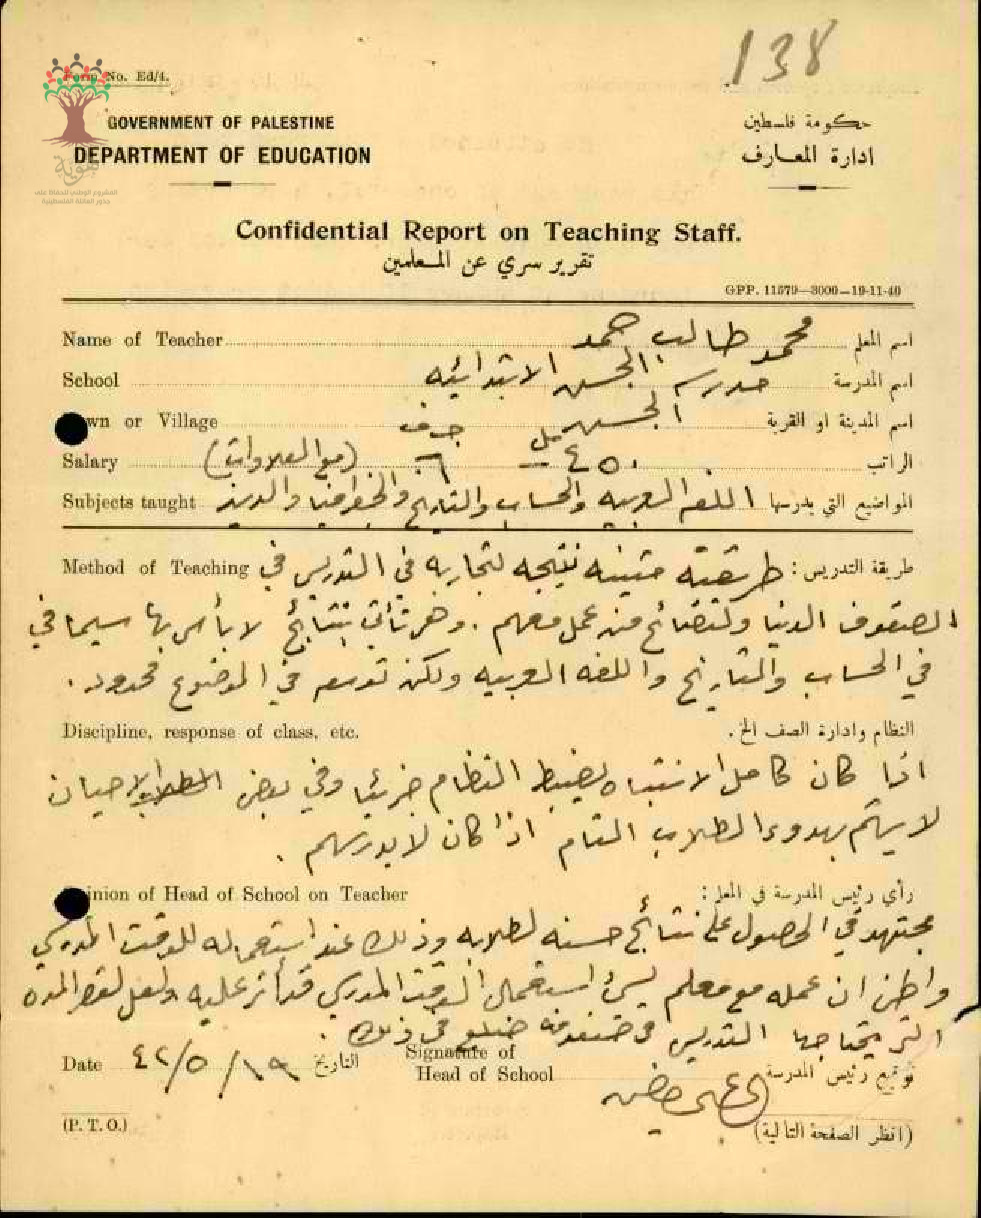 138
Form No. Ed/4.
GOVERNMENT OF PALESTINE
حكومة فلسطين
DEPARTMENT OF EDUCATION
ادارة المعارف
هوية
المشروع الوطني للحفاظ على
جذور العائلة الفلسطينية
Confidential Report on Teaching Staff.
تقرير سري عن المعلمين
GPP. 11579—3000—19-11-40
Name of Teacher محمد طالب حمد اسم المعلم
School مدرسة الابتدائيه اسم المدرسة
wn or Village اسم المدينة او القرية
Salary (مع العلاوات) ٤٥٠ الراتب
Subjects taught اللغه العربيه والحساب والتاريخ والجغرافيا والدين المواضيع التي يدرسها
Method of Teaching طريقة التدريس : طريقته متينه نتيجه لتجاربه في التدريس في
الصفوف الدنيا معهم . بنتائج لا بأس بها سيما في
في الحساب والتاريخ واللغه العربيه ولكن توسعه في الموضوع محدود .
Discipline, response of class, etc. النظام وادارة الصف الخ .
اذا كان كامل الانتباه لضبط النظام جزئيا وفي بعض الاحيان
لا يهتم بهدوء الطلاب التام اذا كان لا يدرسهم .
inion of Head of School on Teacher رأي رئيس المدرسة في المعلم :
مجتهد في الحصول على نتائج حسنه لطلابه وذلك عند استعماله للوقت المدرسي
واظن ان عمله مع معلم يسيء استعمال الوقت المدرسي قد أثر عليه ولعل لقصر المده
التي يحتاجها التدريس في صفوفه ضلع في ذلك .
Date ١٩/٥/٤٢ التاريخ
Signature of
Head of School توقيع رئيس المدرسة
(P. T. O.) (انظر الصفحة التالية)